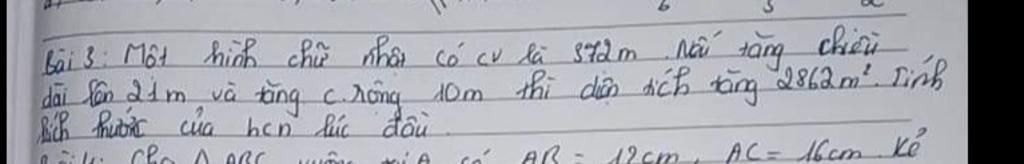 Bài 3: Một hình chữ nhật có cv là 372m. Nếu tăng chiều
dài lên 21m và tăng c.rộng 10m thì diện tích tăng 2862m². Tính
kích thước của hcn lúc đầu.
Cho Δ ABC vuông tại A có AB = 12cm, AC = 16cm. Kẻ